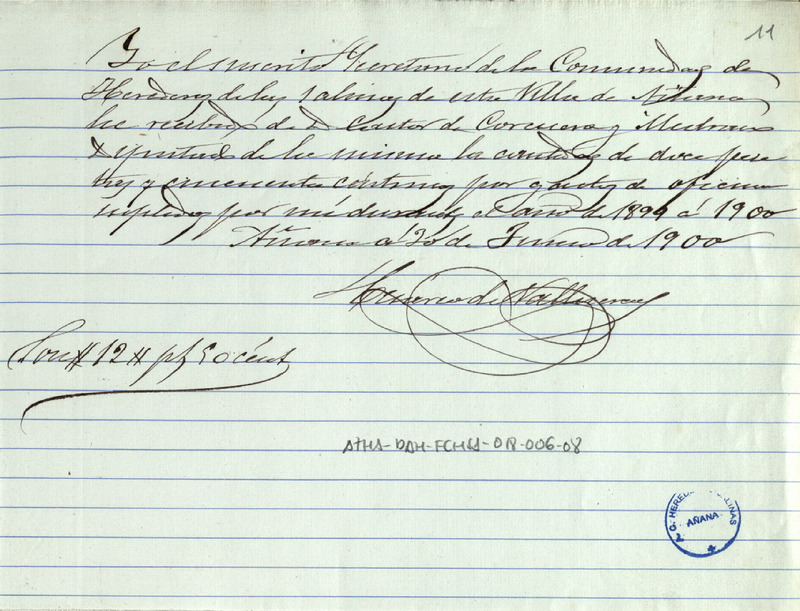 11
Yo el suscrito Secretario de la Comunidad de
Herederos de las Salinas de esta Villa de Añana
he recibido de D Castor de Corcuera y Medrano
Diputado de la misma la cantidad de doce pese
tas y cincuenta céntimos por gastos de oficina
suplidos por mi durante el año de 1899 á 1900
Añana á 30 de Junio de 1900
de
Son # 12 # pts 50 cént
ATHA-DAH-FCHSA-018-006-08
AÑANA